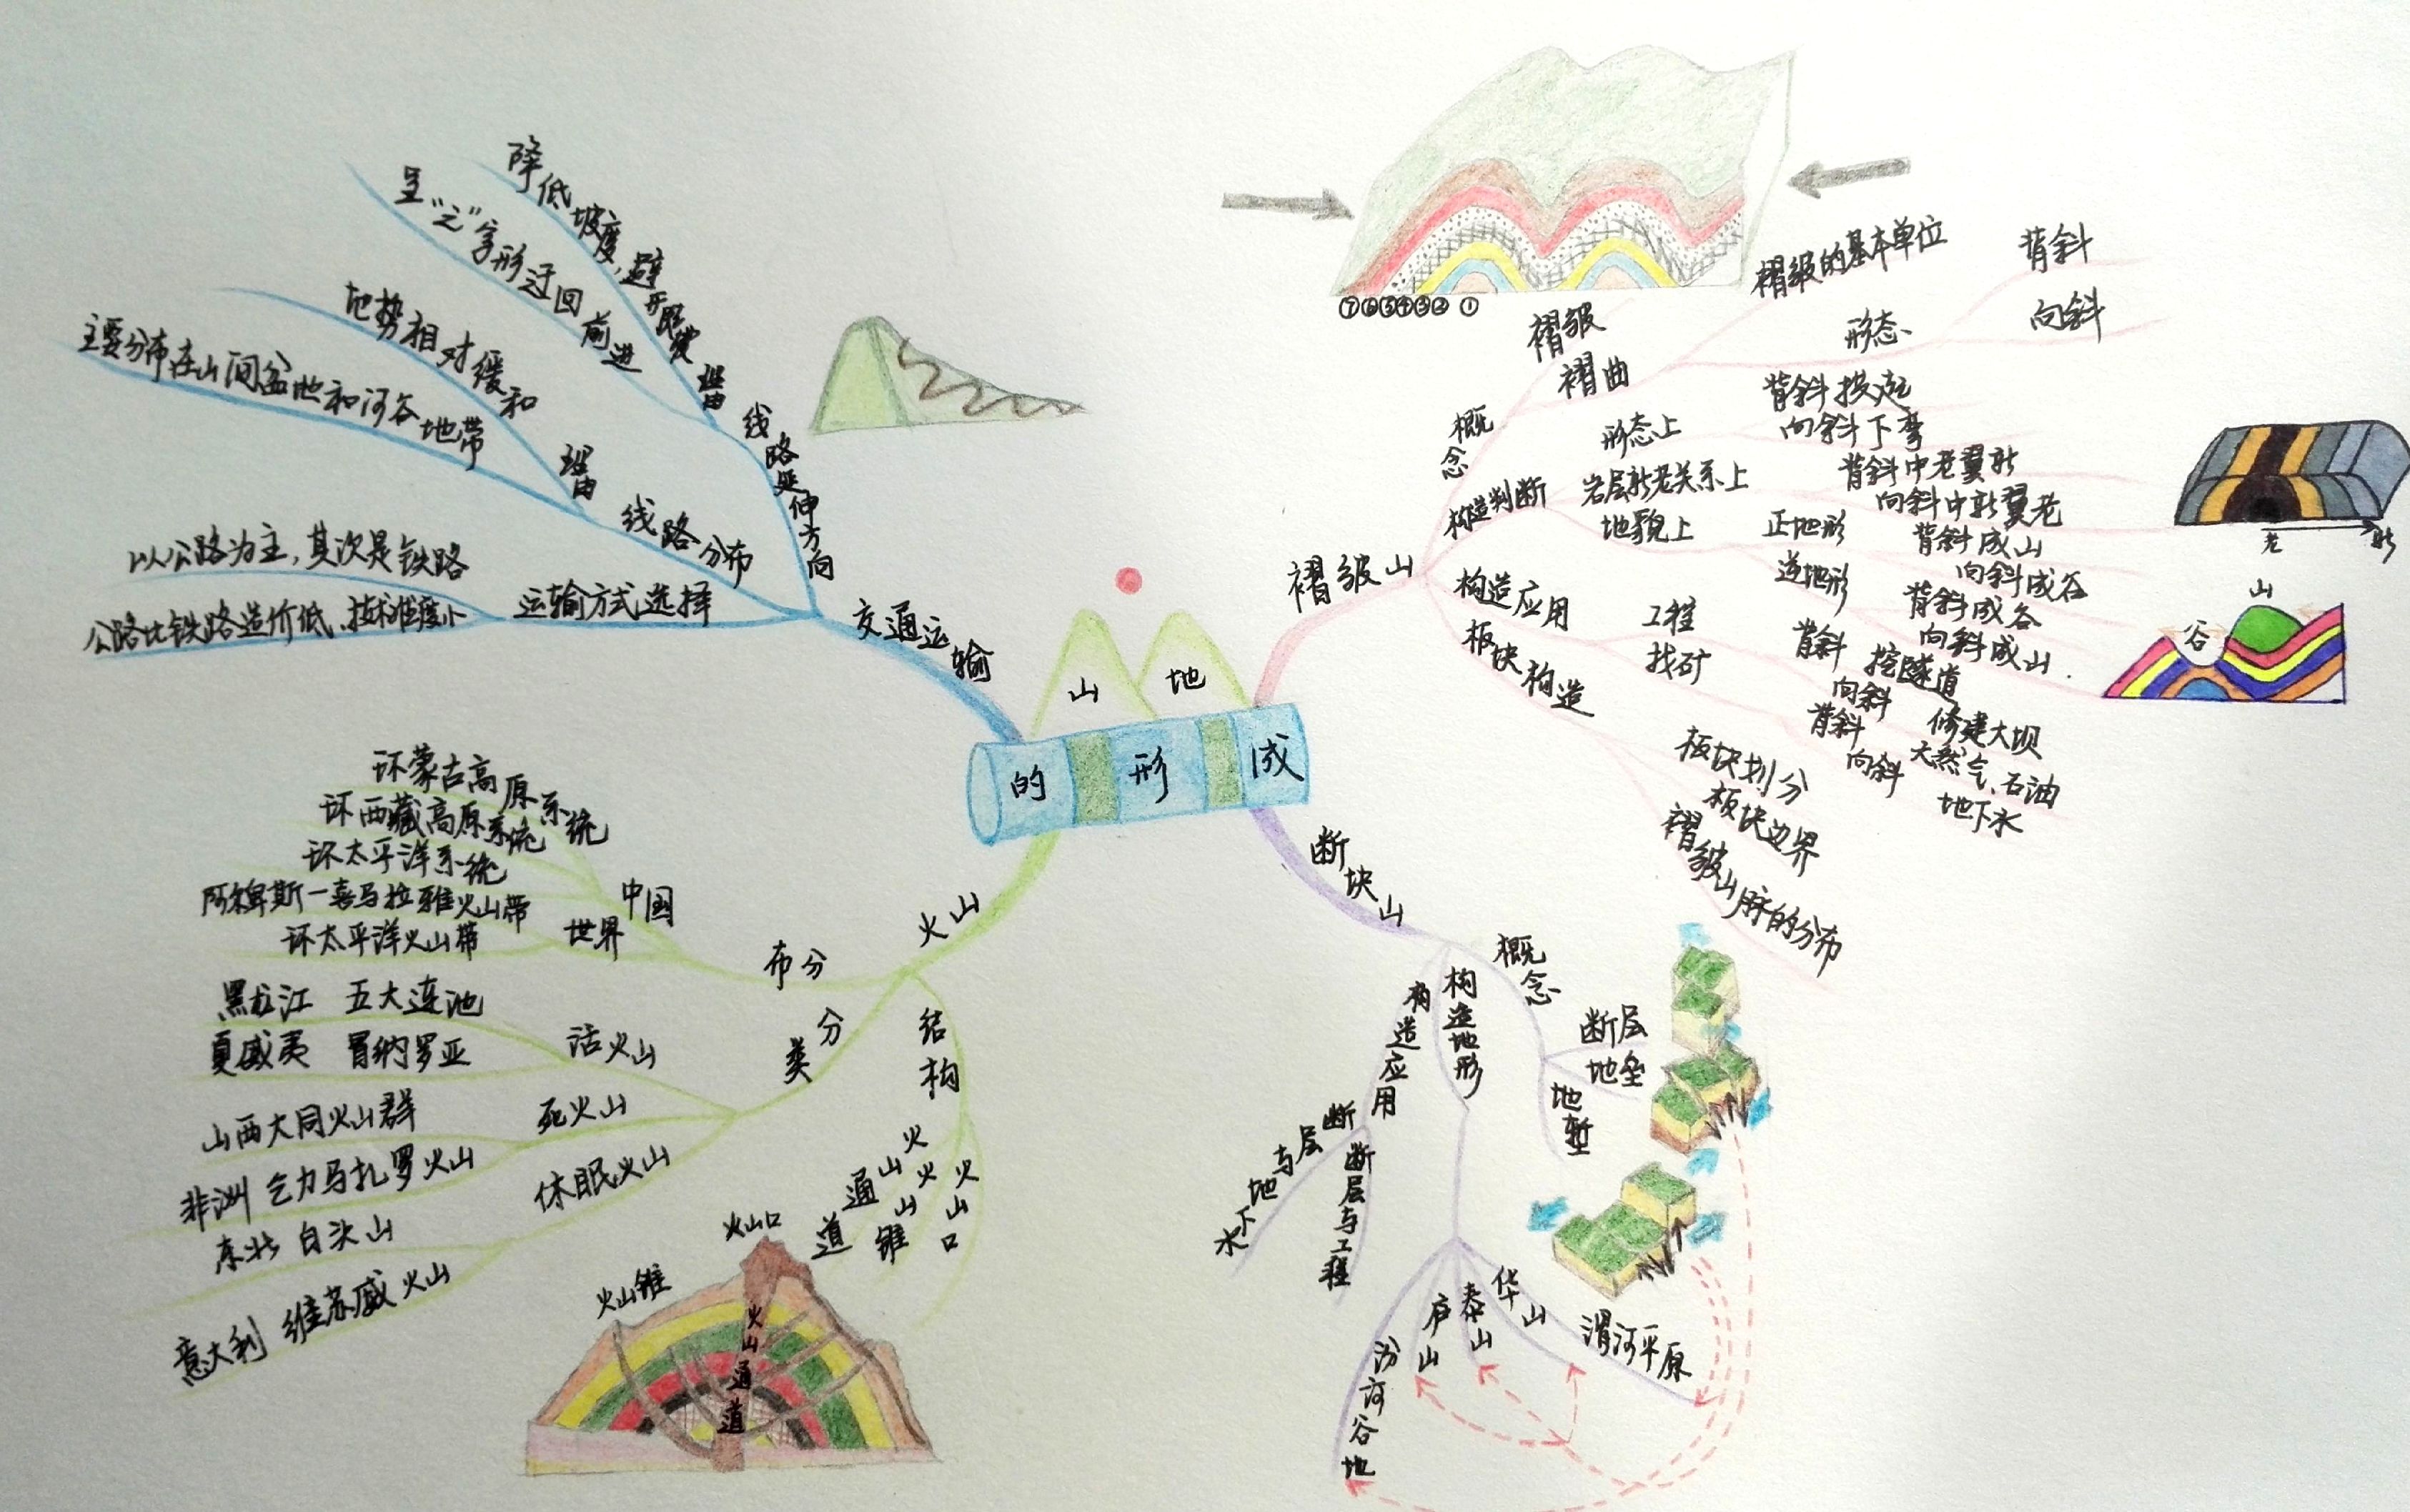 山地
的形成
交通运输
线路延伸方向
理由
降低坡度,避开陡坡
呈“之”字形迂回前进
线路分布
理由
地势相对缓和
主要分布在山间盆地和河谷地带
运输方式选择
以公路为主,其次是铁路
公路比铁路造价低、技术难度小
褶皱山
概念
褶皱
褶曲
褶皱的基本单位
形态
背斜
向斜
⑦⑥⑤④③② ①
构造判断
形态上
背斜拱起
向斜下弯
岩层新老关系上
背斜中老翼新
向斜中新翼老
地貌上
正地形
背斜成山
向斜成谷
逆地形
背斜成谷
向斜成山
老
新
山
谷
构造应用
工程
背斜 挖隧道
向斜 修建大坝
找矿
背斜 天然气、石油
向斜 地下水
板块构造
板块划分
板块边界
褶皱山脉的分布
断块山
概念
断层
地垒
地堑
构造地形
华山
泰山
庐山
渭河平原
汾河谷地
构造应用
断层与地下水
断层与工程
火山
布分
中国
环蒙古高原系统
环西藏高原系统
环太平洋系统
世界
阿卑斯-喜马拉雅火山带
环太平洋火山带
分类
活火山
黑龙江 五大连池
夏威夷 冒纳罗亚
死火山
山西大同火山群
非洲 乞力马扎罗火山
休眠火山
东北 白头山
意大利 维苏威火山
结构
火山通道
火山锥
火山口
火山口
火山锥
火山通道